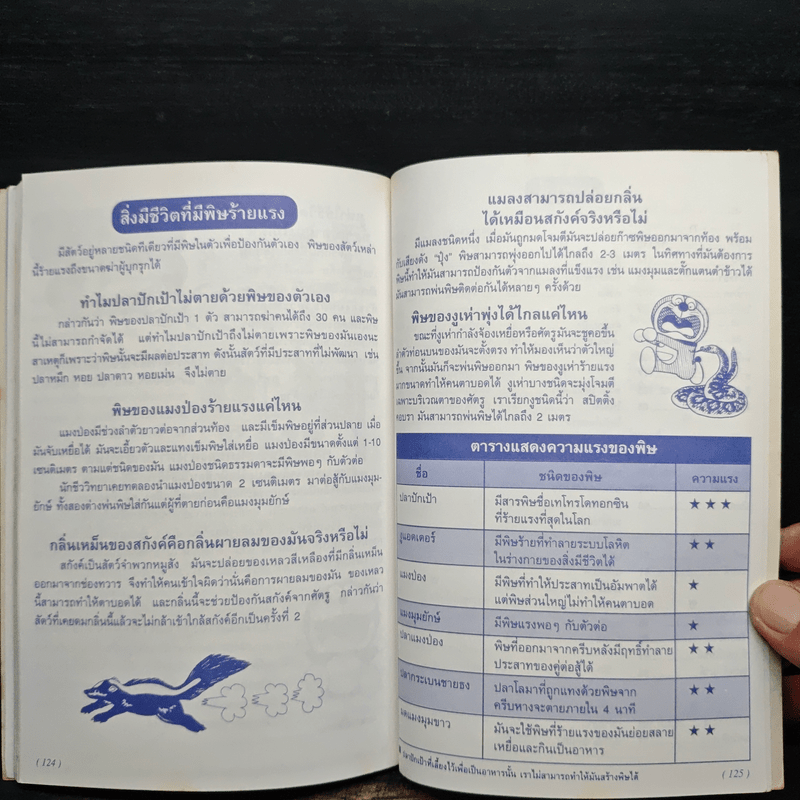 สิ่งมีชีวิตที่มีพิษร้ายแรง
มีสัตว์อยู่หลายชนิดทีเดียวที่มีพิษในตัวเพื่อป้องกันตัวเอง พิษของสัตว์เหล่า
นี้ร้ายแรงถึงขนาดฆ่าผู้บุกรุกได้
ทำไมปลาปักเป้าไม่ตายด้วยพิษของตัวเอง
กล่าวกันว่า พิษของปลาปักเป้า 1 ตัว สามารถฆ่าคนได้ถึง 30 คน และพิษ
นี้ไม่สามารถกำจัดได้ แต่ทำไมปลาปักเป้าถึงไม่ตายเพราะพิษของมันเองนะ
สาเหตุก็เพราะว่าพิษนั้นจะมีผลต่อประสาท ดังนั้นสัตว์ที่มีประสาทที่ไม่พัฒนา เช่น
ปลาหมึก หอย ปลาดาว หอยเม่น จึงไม่ตาย
พิษของแมงป่องร้ายแรงแค่ไหน
แมงป่องมีช่วงลำตัวยาวต่อจากส่วนท้อง และมีเข็มพิษอยู่ที่ส่วนปลาย เมื่อ
มันจับเหยื่อได้ มันจะเอี้ยวตัวและแทงเข็มพิษใส่เหยื่อ แมงป่องมีขนาดตั้งแต่ 1-10
เซนติเมตร ตามแต่ชนิดของมัน แมงป่องชนิดธรรมดาจะมีพิษพอๆ กับตัวต่อ
นักชีววิทยาเคยทดลองนำแมงป่องขนาด 2 เซนติเมตร มาต่อสู้กับแมงมุม-
ยักษ์ ทั้งสองต่างพ่นพิษใส่กันแต่ผู้ที่ตายก่อนคือแมงมุมยักษ์
กลิ่นเหม็นของสกังค์คือกลิ่นผายลมของมันจริงหรือไม่
สกังค์เป็นสัตว์จำพวกหมูสัง มันจะปล่อยของเหลวสีเหลืองที่มีกลิ่นเหม็น
ออกมาจากช่องทวาร จึงทำให้คนเข้าใจผิดว่านั่นคือการผายลมของมัน ของเหลว
นี้สามารถทำให้ตาบอดได้ และกลิ่นนี้จะช่วยป้องกันสกังค์จากศัตรู กล่าวกันว่า
สัตว์ที่เคยดมกลิ่นนี้แล้วจะไม่กล้าเข้าใกล้สกังค์อีกเป็นครั้งที่ 2
( 124 )
แมลงสามารถปล่อยกลิ่น
ได้เหมือนสกังค์จริงหรือไม่
มีแมลงชนิดหนึ่ง เมื่อมันถูกมดโจมตีมันจะปล่อยก๊าซพิษออกมาจากท้อง พร้อม
กับเสียงดัง "ปุ้ง" พิษสามารถพุ่งออกไปได้ไกลถึง 2-3 เมตร ในทิศทางที่มันต้องการ
พิษนี้ทำให้มันสามารถป้องกันตัวจากแมลงที่แข็งแรง เช่น แมงมุมและตั๊กแตนตำข้าวได้
มันสามารถพ่นพิษติดต่อกันได้หลายๆ ครั้งด้วย
พิษของงูเห่าพุ่งได้ไกลแค่ไหน
ขณะที่งูเห่ากำลังจ้องเหยื่อหรือศัตรูมันจะชูคอขึ้น
ลำตัวท่อนบนของมันจะตั้งตรง ทำให้มองเห็นว่าตัวใหญ่
ขึ้น จากนั้นมันก็จะพ่นพิษออกมา พิษของงูเห่าร้ายแรง
มากขนาดทำให้คนตาบอดได้ งูเห่าบางชนิดจะมุ่งโจมตี
เฉพาะบริเวณตาของศัตรู เราเรียกงูชนิดนี้ว่า สปิตติ้ง
คอบรา มันสามารถพ่นพิษได้ไกลถึง 2 เมตร
ตารางแสดงความแรงของพิษ
ชื่อ ชนิดของพิษ ความแรง
ปลาปักเป้า มีสารพิษชื่อเทโทรโดทอกซิน ★ ★ ★
ที่ร้ายแรงที่สุดในโลก
งูแอดเดอร์ มีพิษร้ายที่ทำลายระบบโลหิต ★ ★
ในร่างกายของสิ่งมีชีวิตได้
แมงป่อง มีพิษที่ทำให้ประสาทเป็นอัมพาตได้ ★
แต่พิษส่วนใหญ่ไม่ทำให้คนตาบอด
แมงมุมยักษ์ มีพิษแรงพอๆ กับตัวต่อ ★
ปลาแมงป่อง พิษที่ออกมาจากครีบหลังมีฤทธิ์ทำลาย ★ ★
ประสาทของคู่ต่อสู้ได้
ปลากระเบนชายธง ปลาโลมาที่ถูกแทงด้วยพิษจาก ★ ★
ครีบหางจะตายภายใน 4 นาที
มดแมงมุมขาว มันจะใช้พิษที่ร้ายแรงของมันย่อยสลาย ★ ★
เหยื่อและกินเป็นอาหาร
ปลาปักเป้าที่เลี้ยงไว้เพื่อเป็นอาหารนั้น เราไม่สามารถทำให้มันสร้างพิษได้
( 125 )